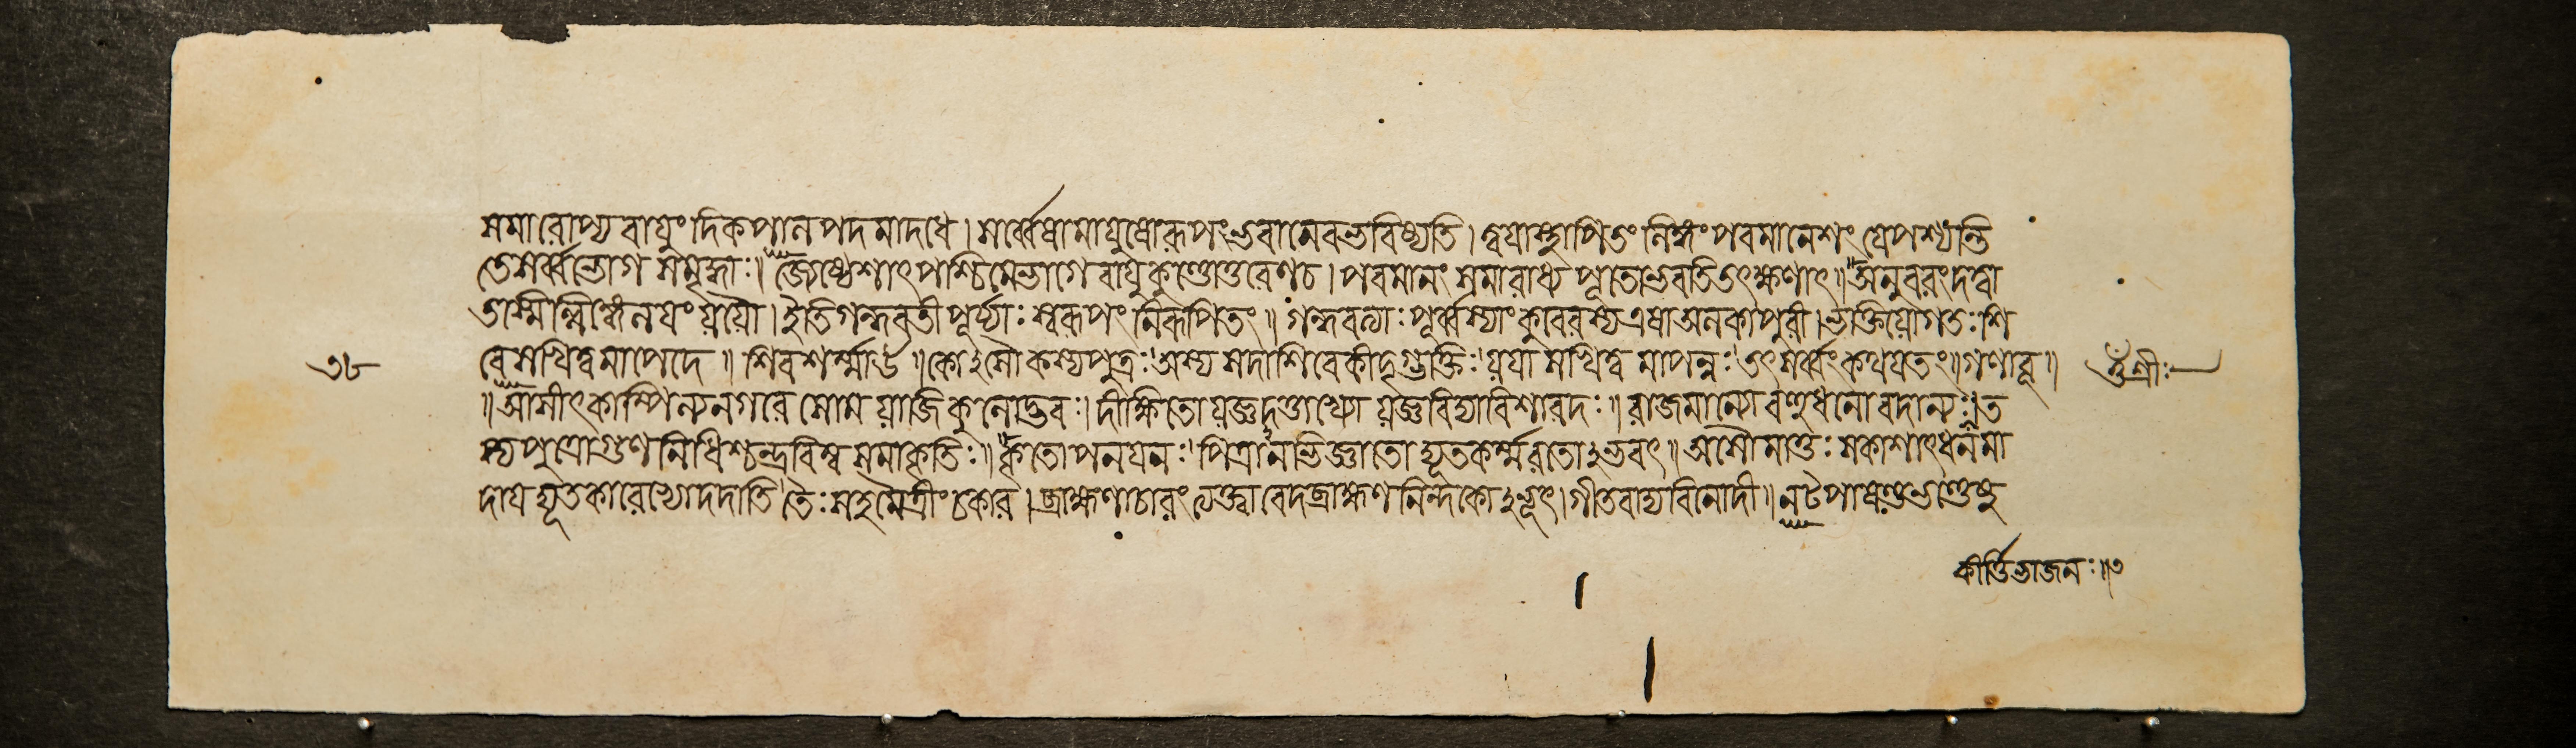 সমারোপ্য বায়ুং দিকপালপদমাদধে। সর্ব্বেষামায়ুষোরূপং ভবানেব ভবিষ্যতি। ত্বয়াস্থাপিতং লিঙ্গং পবমানেশং যেপশ্যন্তি
তেসর্ব্বভোগ সমৃদ্ধাঃ॥ জ্যেষ্ঠেশাৎপশ্চিমেভাগে বায়ুকুণ্ডোত্তরেণচ। পবমানং সমারাধ্য পূতোভবতিতৎক্ষণাৎ॥ অনুবরংদত্বা
তস্মিল্লিঙ্গেলয়ং যযৌ। ইতিগন্ধবতীপূর্য্যাঃ স্বরূপং নিরূপিতং॥ গন্ধবত্যাঃ পূর্ব্বস্যাং কুবেরস্য এষাঅলকাপুরী। ভক্তিযোগতঃ শি
বেসখিত্বমাপেদে॥ শিবশর্ম্মাউ॥ কোঽসৌ কস্যপুত্রঃ অস্য সদাশিবেকীদৃগ্ভক্তিঃ যয়া সখিত্ব মাপন্নঃ তৎসর্ব্বং কথয়তং॥ গণাবূ॥
৩৮
ওঁশ্রীঃ
॥ আসীৎকাম্পিল্যনগরে সোম যাজিকুলোদ্ভবঃ। দীক্ষিতো যজ্ঞদত্তাখ্যো যজ্ঞবিদ্যাবিশারদঃ॥ রাজমান্যো বহুধনো বদান্যঃ॥ ত
স্যপুত্রোগুণনিধিশ্চন্দ্রবিম্ব সমাকৃতিঃ॥ কৃতোপনয়নঃ পিত্রানভিজ্ঞাতো দ্যূতকর্ম্মরতোঽভবৎ॥ অসৌমাতুঃ সকাশাৎধনমা
দায় দ্যূতকারেভ্যোদদাতি তৈঃ সহমৈত্রীংচকার। ব্রাহ্মণাচারং ত্যক্ত্বা বেদব্রাহ্মণনিন্দকোঽভূৎ। গীতবাদ্যবিনোদী॥ নটপাষণ্ডভাণ্ডেষু
কীর্ত্তিভাজনঃ॥৩